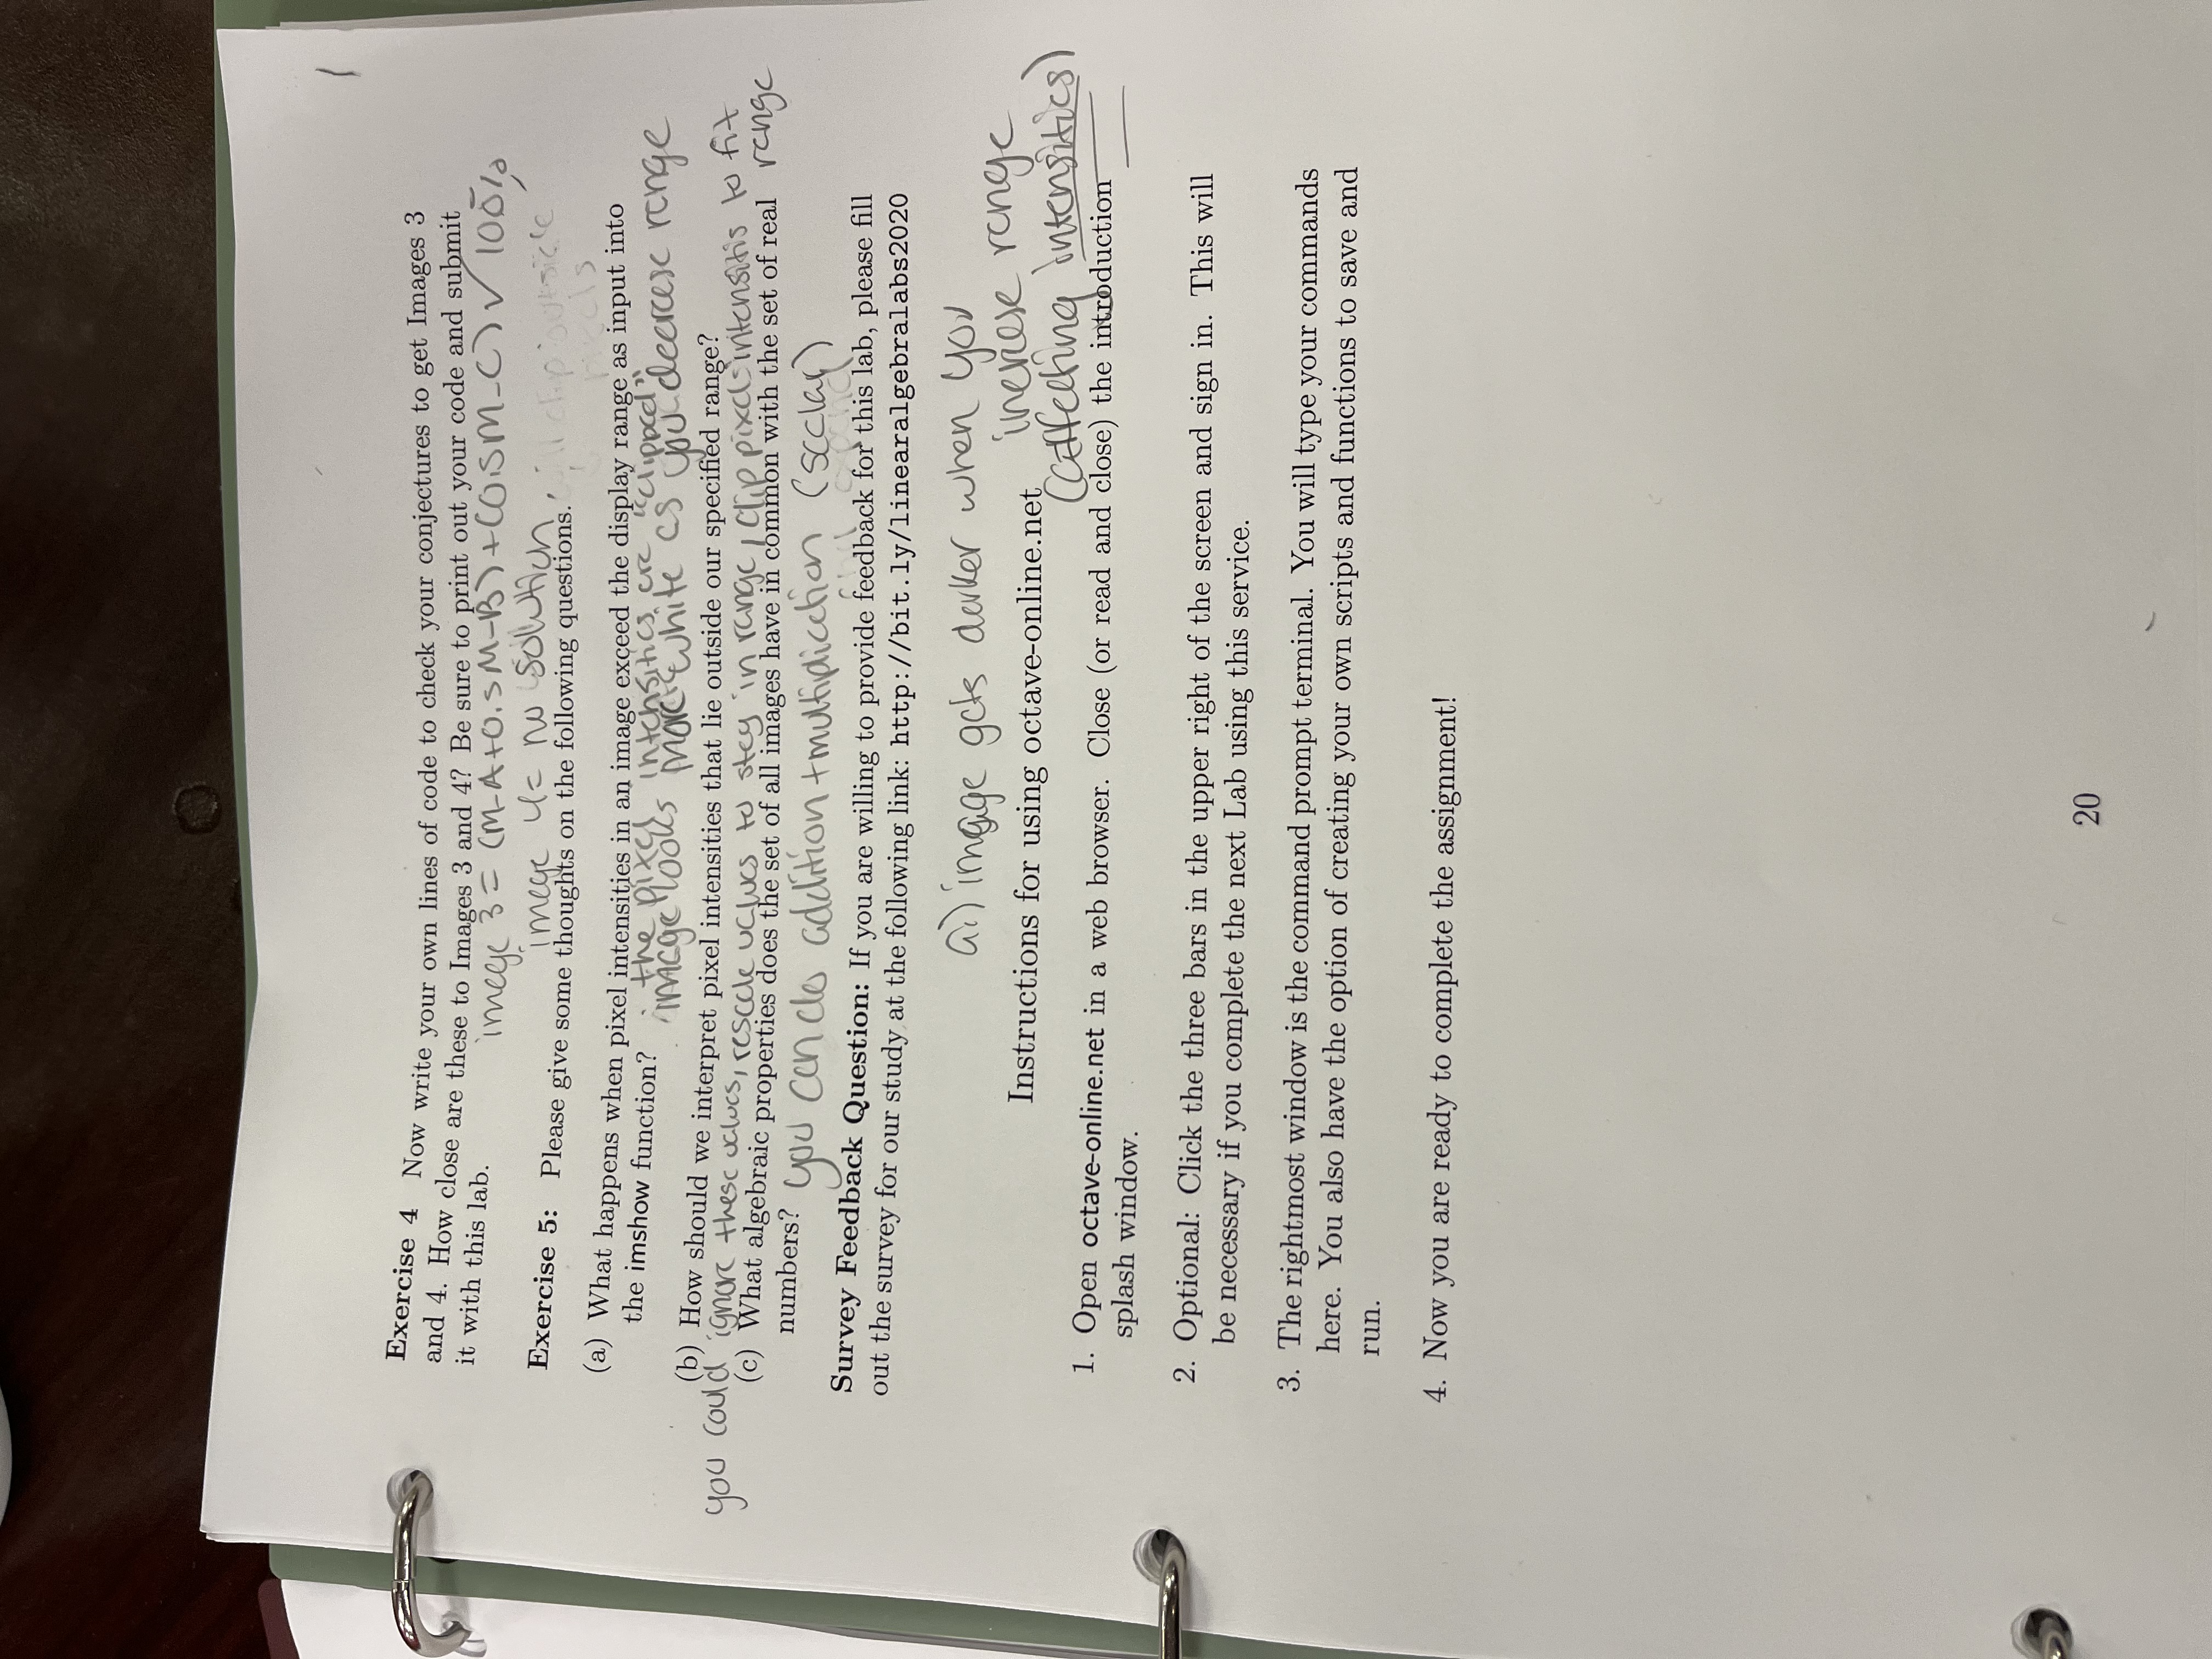 Exercise 4 Now write your own lines of code to check your conjectures to get Images 3
and 4. How close are these to Images 3 and 4? Be sure to print out your code and submit
it with this lab.
image 3 = (M-A+0.5M-B)+(0.5M-C) ✓ 100%
image 4= no solution
Exercise 5: Please give some thoughts on the following questions.
clip outside
pixels
(a) What happens when pixel intensities in an image exceed the display range as input into
the imshow function? the pixel intensities are "clipped"
image looks more white as you decrease range
(b) How should we interpret pixel intensities that lie outside our specified range?
you could ignore these values, rescale values to stay in range, clip pixels intensitis to fit
range
(c) What algebraic properties does the set of all images have in common with the set of real
numbers? you can do addition + multiplication (scalar)
Survey Feedback Question: If you are willing to provide feedback for this lab, please fill
out the survey for our study at the following link: http://bit.ly/linearalgebralabs2020
a.) image gets darker when you
increse range
(affecting intensities)
Instructions for using octave-online.net
1. Open octave-online.net in a web browser. Close (or read and close) the introduction
splash window.
2. Optional: Click the three bars in the upper right of the screen and sign in. This will
be necessary if you complete the next Lab using this service.
3. The rightmost window is the command prompt terminal. You will type your commands
here. You also have the option of creating your own scripts and functions to save and
run.
4. Now you are ready to complete the assignment!
20